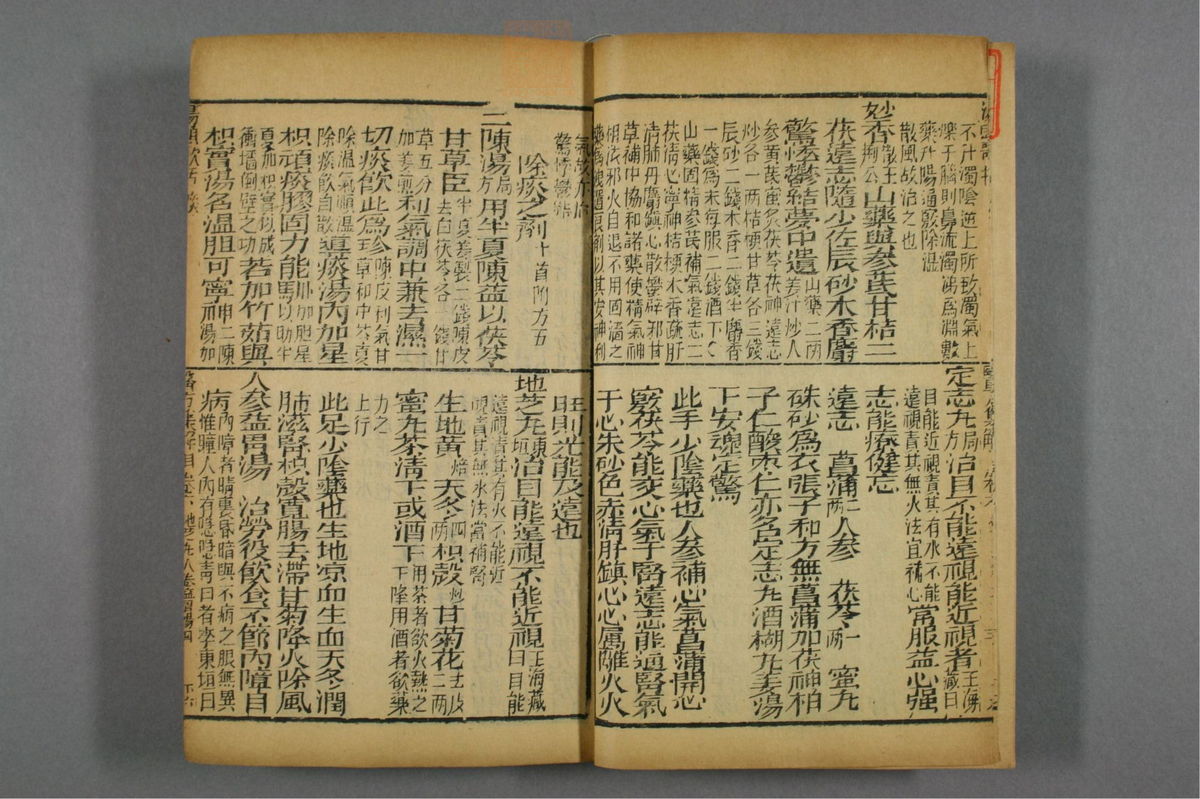 不升濁陰逆上所致濁氣上
爍于腦則鼻流濁涕為淵數
藥升陽通竅除濕
散風故治之也
妙香散王荆公山藥與參芪甘桔二
茯遠志隨少佐辰砂木香麝
驚悸鬱結夢中遺山藥二兩薑汁炒人
參黃芪蜜炙茯苓茯神遠志
炒各一兩桔梗甘草各三錢
辰砂二錢木香二錢半麝香
一錢為末每服二錢酒下
山藥固精參芪補氣遠志二
茯清心寧神桔梗木香疏肝
清肺丹麝鎮心散鬱辟邪甘
草補中協和諸藥使精氣神
相依邪火自退不用固澀之
藥為洩遺良劑以其安神利
定志丸局方治目不能遠視能近視者王海藏曰
目能近視責其有水不能
遠視責其無火法宜補心常服益心強
志能療健忘
遠志 菖蒲二兩人參 茯苓一兩 蜜丸
硃砂為衣張子和方無菖蒲加茯神柏
子仁酸棗仁亦名定志丸酒糊丸姜湯
下安魂定驚
此手少陰藥也人參補心氣菖蒲開心
竅茯苓能交心氣于腎遠志能通腎氣
于心朱砂色赤清肝鎮心心屬離火火
氣故亦治
驚悸鬱結
除痰之劑十首附方五
二陳湯局方用半夏陳益以茯苓
甘草臣半夏姜製二錢陳皮去白茯苓各一錢甘
草五分加姜煎利氣調中兼去濕一
切痰飲此為珍陳皮利氣甘草和中苓夏
除濕氣順濕除痰飲自散導痰湯內加星
枳頑痰膠固力能馴加胆星以助半
夏加枳實以成衝墻倒壁之功若加竹茹與
枳實湯名溫胆可寧神二陳湯加
旺則光能及遠也
地芝丸東垣治目能遠視不能近視王海藏曰目能
遠視責其有火不能近
視責其無水法當補腎
生地黃焙 天冬四兩枳殼炒 甘菊花去皮二兩
蜜丸茶清下或酒下用茶者欲火熱之下降用酒者欲藥
力之
上行
此足少陰藥也生地凉血生血天冬潤
肺滋腎枳殼寬腸去滯甘菊降火除風
人參益胃湯 治勞役飲食不節內障目
病內障者睛裏昏暗與不病之眼無異
惟瞳人內有隱隱青白者李東垣曰